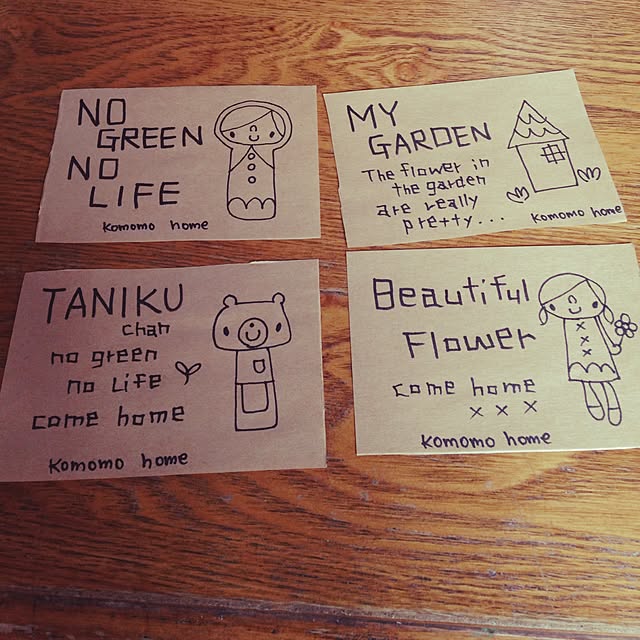 NO
GREEN
NO
LIFE
komomo home
MY
GARDEN
The flower in
the garden
are really
pretty...
komomo home
TANIKU
chan
no green
no Life
come home
komomo home
Beautiful
Flower
come home
× × ×
komomo home